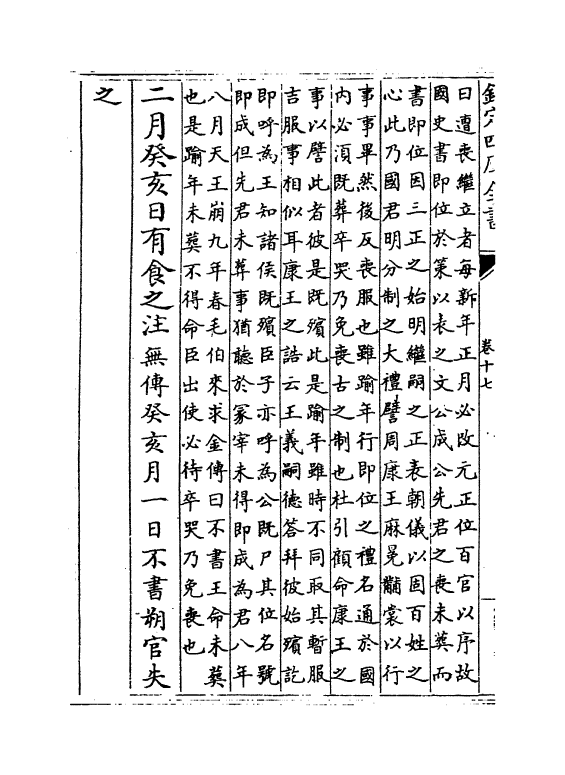 欽定四庫全書
卷十七
曰遭喪繼立者每新年正月必改元正位百官以序故
國史書即位於策以表之文公成公先君之喪未葬而
書即位因三正之始明繼嗣之正表朝儀以固百姓之
心此乃國君明分制之大禮譬周康王麻冕黼裳以行
事事畢然後反喪服也雖踰年行即位之禮名通於國
內必須既葬卒哭乃免喪古之制也杜引顧命康王之
事以譬此者彼是既殯此是踰年雖時不同取其暫服
吉服事相似耳康王之誥云王義嗣德答拜彼始殯訖
即呼為王知諸侯既殯臣子亦呼為公既尸其位名號
即成但先君未葬事猶聽於冢宰未得即成為君八年
八月天王崩九年春毛伯來求金傳曰不書王命未葬
也是踰年未葬不得命臣出使必待卒哭乃免喪也
二月癸亥日有食之注無傳癸亥月一日不書朔官失
之